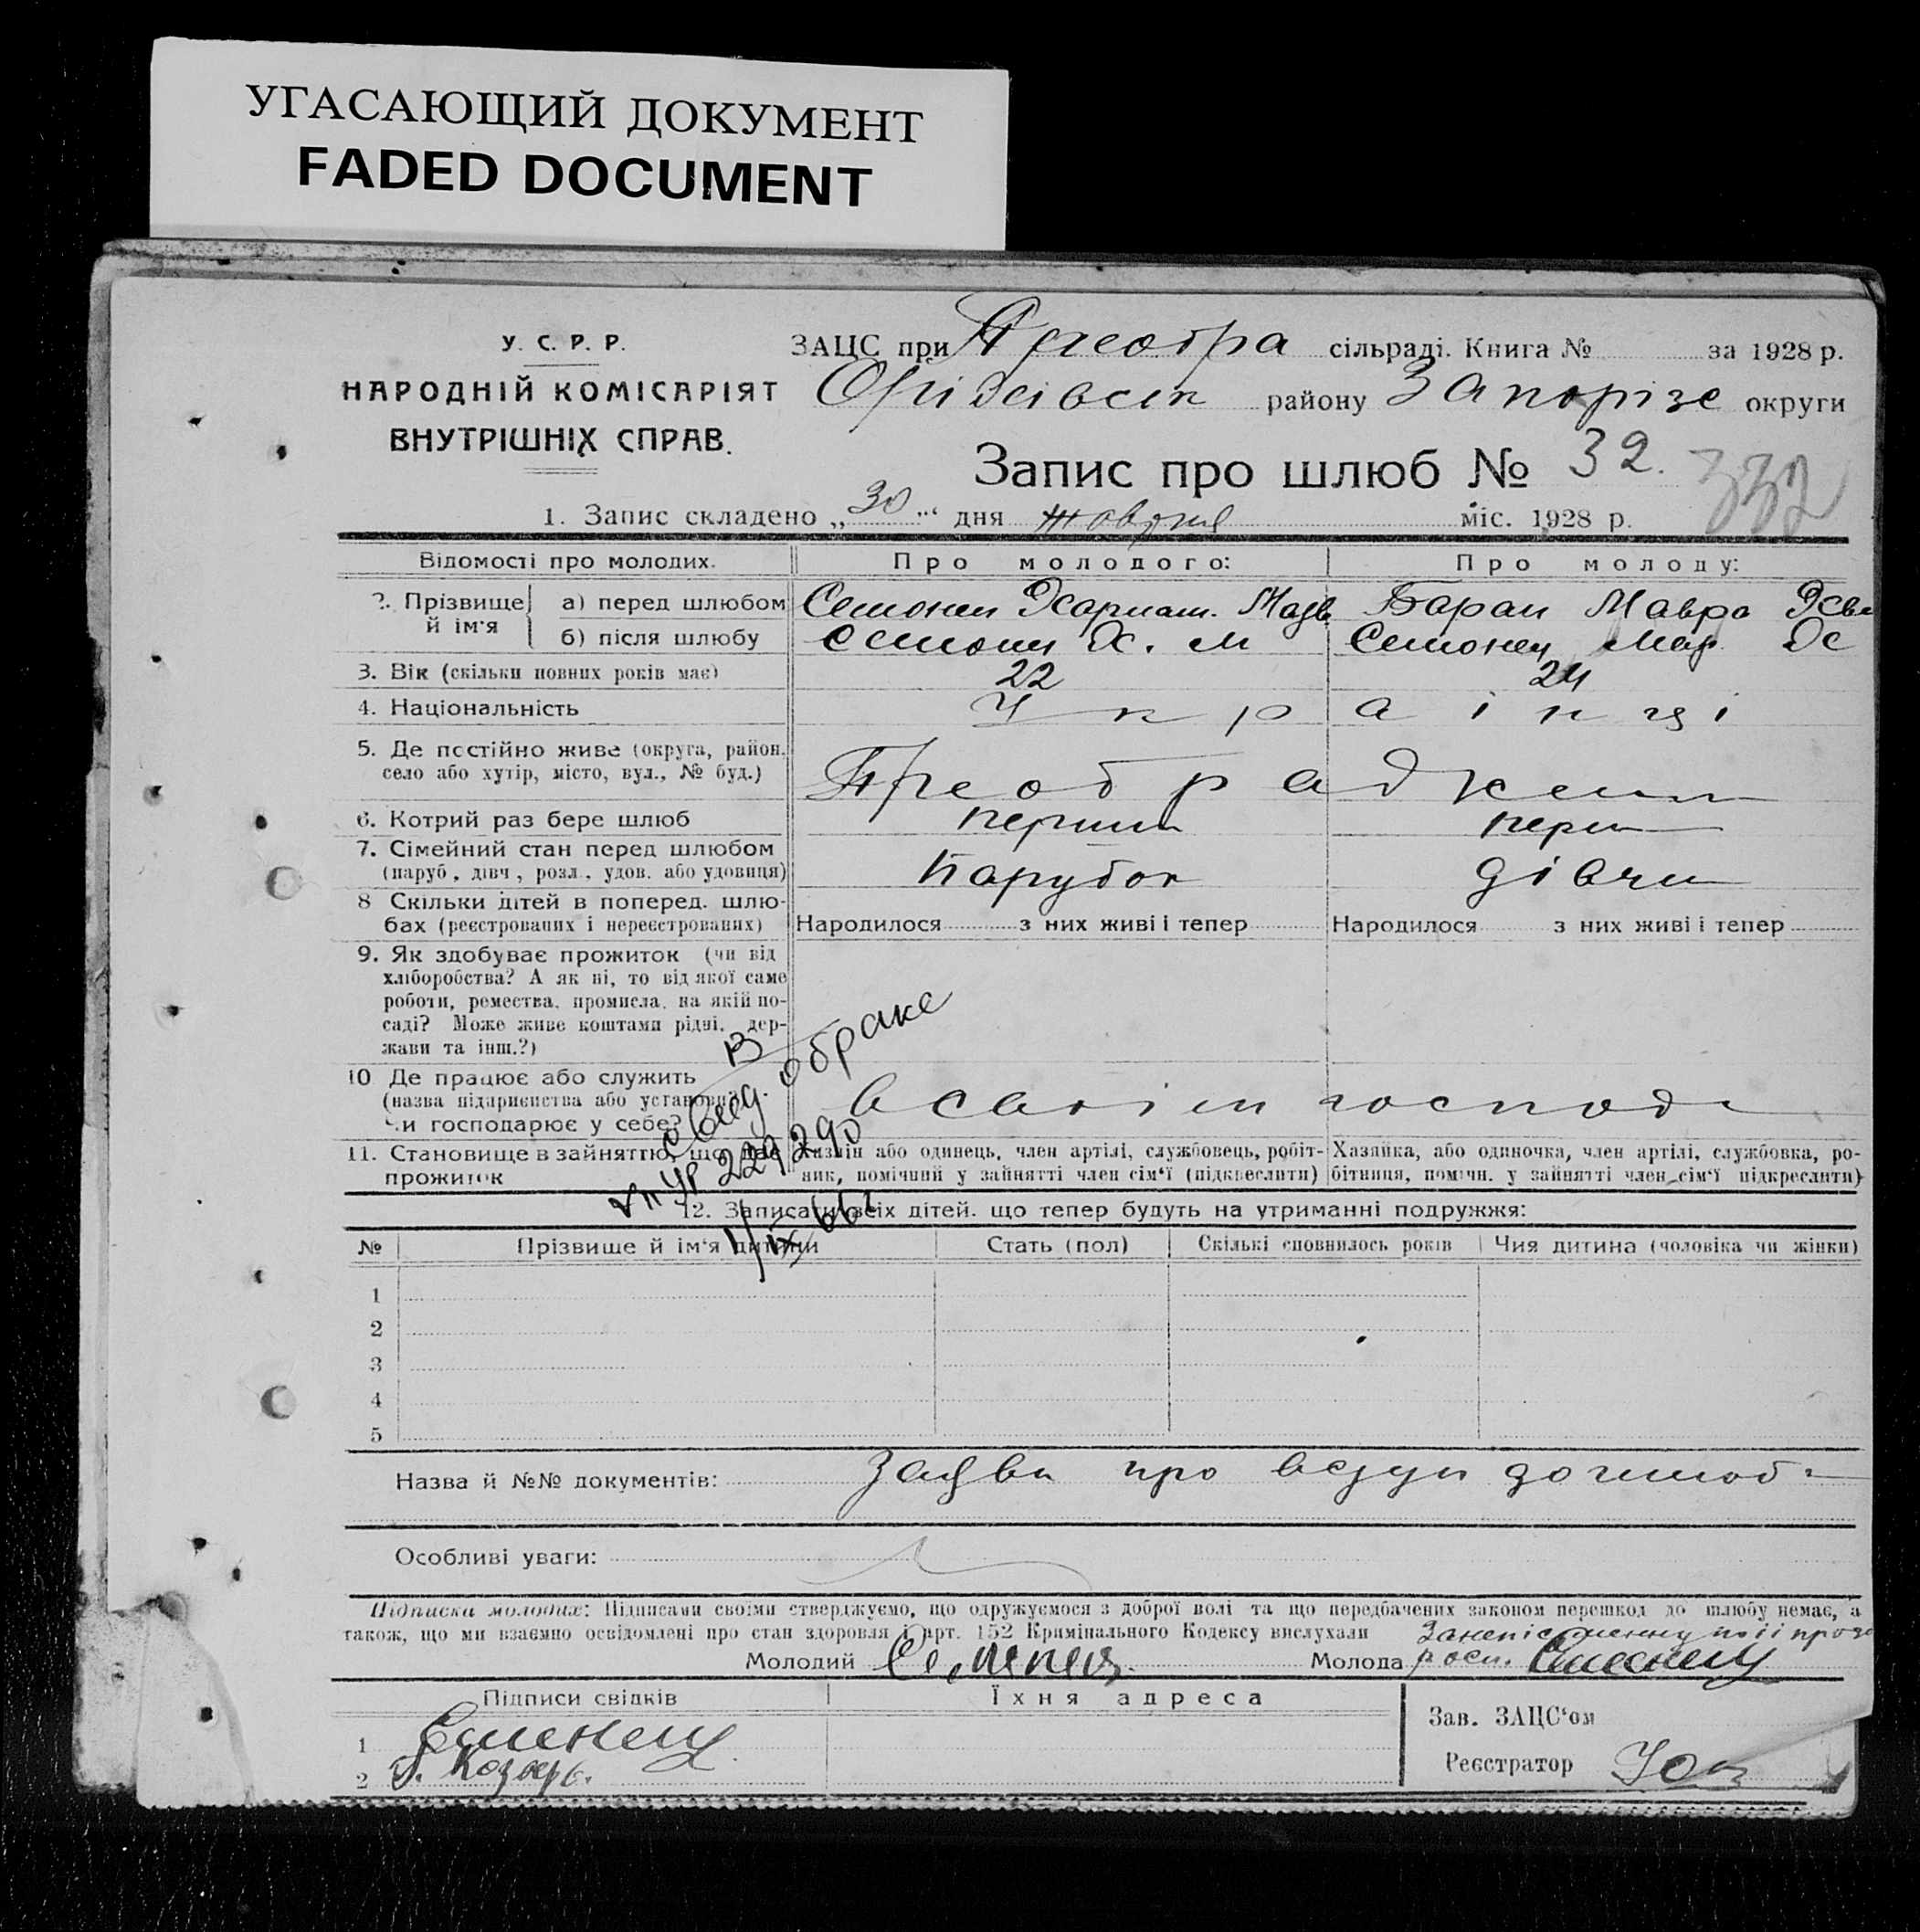 УГАСАЮЩИЙ ДОКУМЕНТ
FADED DOCUMENT
У. С. Р. Р.
НАРОДНІЙ КОМІСАРІЯТ
ВНУТРІШНІХ СПРАВ.
ЗАЦС при Преобра сільраді. Книга № за 1928 р.
Оріхівськ району Запорізь округи
Запис про шлюб № 32. 332
1. Запис складено „30“ дня жовтня міс. 1928 р.
Відомості про молодих. Про молодого: Про молоду:
2. Прізвище й ім'я а) перед шлюбом Баран Мавра
б) після шлюбу
3. Вік (скільки повних років має) 22 24
4. Національність Українці
5. Де постійно живе (округа, район,
село або хутір, місто, вул., № буд.) Преображен
6. Котрий раз бере шлюб перший перш
7. Сімейний стан перед шлюбом
(паруб, дівч, розл., удов. або удовиця) Парубок дівчи
8 Скільки дітей в поперед. шлю-
бах (реєстрованих і нереєстрованих) Народилося з них живі і тепер Народилося з них живі і тепер
9. Як здобуває прожиток (чи від
хліборобства? А як ні, то від якої саме
роботи, ремества, промисла, на якій по-
саді? Може живе коштами рідні, дер-
жави та інш.?)
10 Де працює або служить
(назва підприємства або установи)
чи господарює у себе?
11. Становище в зайняттю, що дає
прожиток
Хазяїн або одинець, член артілі, службовець, робіт-
ник, помічний у зайнятті член сім'ї (підкреслити)
Хазяйка, або одиночка, член артілі, службовка, ро-
бітниця, помічн. у зайнятті член сім'ї підкреслити)
о браке
229290
12. Записати всіх дітей. що тепер будуть на утриманні подружжя:
№ Прізвище й ім'я дитини Стать (пол) Скількі сповнилось років Чия дитина (чоловіка чи жінки)
1
2
3
4
5
Назва й №№ документів: про
Особливі уваги:
Підписка молодих: Підписами своїми стверджуємо, що одружуємося з доброї волі та що передбачених законом перешкод до шлюбу немає, а
також, що ми взаємно освідомлені про стан здоровля і арт. 152 Кримінального Кодексу вислухали
Молодий Молода
Підписи свідків Їхня адреса
Зав. ЗАЦС'ом
1
Реєстратор
2